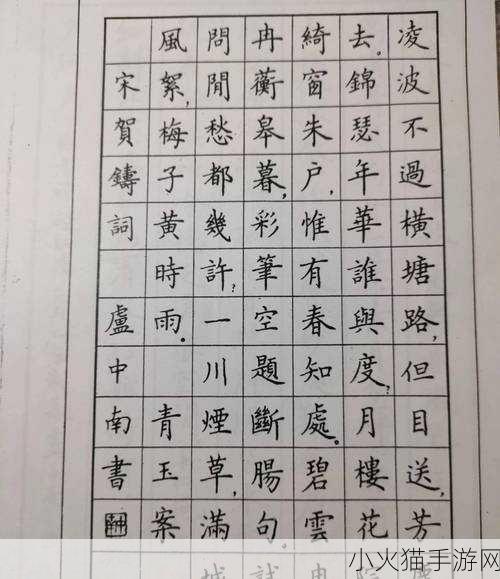 凌波不過橫塘路,但目送,芳塵
去。錦瑟年華誰與度,月樓花院
綺窗朱户,惟有春知處。碧雲冉
冉蘅皋暮,彩筆空題斷腸句。試
問閒愁都幾許?一川煙草,滿城
風絮,梅子黃時雨。 青玉案
宋賀鑄詞 盧中南書
小火猫手游网